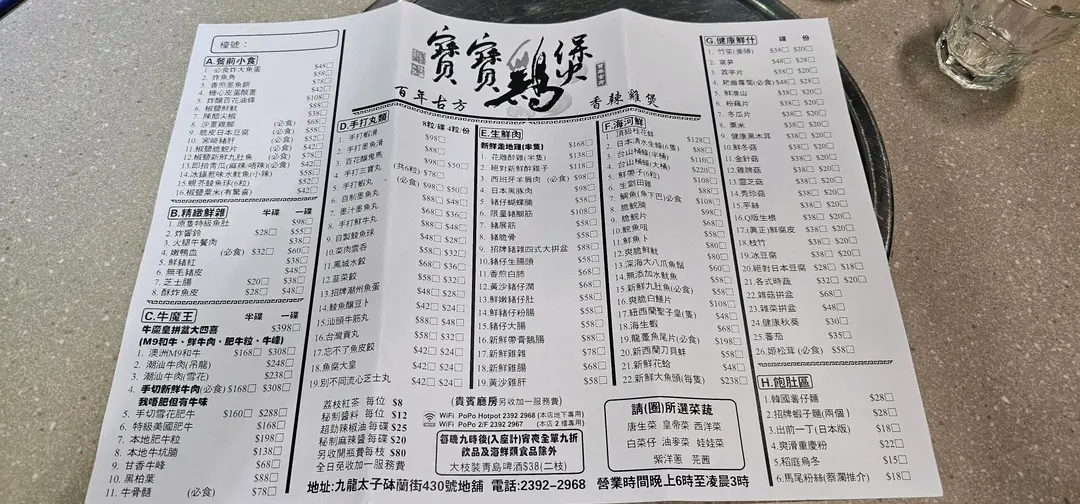 檯號：
寶寶雞煲
百年古方 香辣雞煲
A.餐前小食
1. 必食炸大魚蛋 $48☐
2. 炸魚角 $58☐
3. 香煎墨魚餅 $78☐
4. 糖心皮蛋酸薑 $42☐
5. 炸釀百花油條 $108☐
6. 椒鹽鮮魷 $88☐
7. 辣酷尖椒 $38☐
8. 沙薑雞腳 (必食) $68☐
9. 脆皮日本豆腐 (必食) $58☐
10. 宮崎豬肝 (必食) $52☐
11.椒鹽脆鯇片 (必食) $42☐
12.椒鹽新鮮九肚魚 (必食) $78☐
13.即拍青瓜(麻辣/唔辣)(必食) $42☐
14.冰鎮惹味水魷魚(小辣) $58☐
15.蜆芥鯪魚球(6粒) $52☐
16.椒鹽粟米(有驚喜) $42☐
B.精緻鮮雜 半碟 一碟
1. 原隻特級魚肚 $98☐
2. 炸響鈴 $28☐ $55☐
3. 火腿午餐肉 $38☐
4. 嫩鴨血 (必食) $32☐ $60☐
5. 鮮豬紅 $38☐
6. 無毛豬皮 $48☐
7. 芝士腸 $20☐ $38☐
8. 酥炸魚皮 $28☐ $48☐
C.牛魔王 半碟 一碟
牛魔皇拼盆大四喜 $398☐
(M9和牛、鮮牛肉、肥牛粒、牛峰)
1. 澳洲M9和牛 $168☐ $308☐
2. 潮汕牛肉(吊龍) $248☐
3. 潮汕牛肉(雪花) $238☐
4. 手切新鮮牛肉(必食) $168☐ $308☐
我唔肥但有牛味
5. 手切雪花肥牛 $160☐ $288☐
6. 特級美國肥牛 $168☐
7. 本地肥牛粒 $198☐
8. 本地牛坑腩 $138☐
9. 甘香牛峰 $68☐
10. 黑柏葉 $88☐
11. 牛骨髓 (必食) $78☐
D.手打丸類 8粒/碟 4粒/份
1. 手打蝦滑 $98☐
2. 手打墨魚滑 $88☐
3. 百花釀鬼馬 $98☐ $50☐
4. 手打三寶丸 (共6粒) $78☐
5. 手打蝦丸 (必食) $98☐ $50☐
6. 自制墨魚丸 $88☐
7. 墨汁墨魚丸 $68☐ $36☐
8. 手打鮮牛丸 $88☐
9. 自製鯪魚球 $48☐ $28☐
10.菜肉雲吞 $58☐ $32☐
11.鳳城水餃 $68☐ $36☐
12.韮菜餃 $58☐ $32☐
13.招牌潮州魚蛋 $48☐ $28☐
14.鯪魚釀豆卜 $42☐ $24☐
15.汕頭牛筋丸 $88☐ $48☐
16.台灣貢丸 $58☐ $32☐
17.忘不了魚皮餃 $42☐ $24☐
18.魚腐大皇 $42☐ $24☐
19.別不同流心芝士丸 $42☐ $24☐
E.生鮮肉
新鮮走地雞(半隻) $168☐
1. 花雕醉雞(半隻) $138☐
2. 絕對新鮮醉雞子 $118☐
3. 西班牙羊肩肉 (必食) $98☐
4. 日本黑豚肉 $98☐
5. 豬仔蝴蝶腩 $58☐
6. 限量豬腳筋 $108☐
7. 豬展筋 $58☐
8. 豬脆骨 $58☐
9. 招牌豬雜四式大拼盆 $88☐
10.豬仔生腸頭 $58☐
11.香煎白肺 $68☐
12.黃沙豬仔潤 $58☐
13.鮮嫩豬仔肚 $58☐
14.鮮豬仔粉腸 $58☐
15.豬仔大腸 $58☐
16.新鮮帶膏鵝腸 $88☐
17.新鮮雞雜 $78☐
18.新鮮雞腎 $68☐
19.黃沙雞肝 $58☐
F.海河鮮
1. 頂級桂花蚌 $128☐
2. 日本凊水生蠔(6隻) $88☐
3. 台山桶蠔(半桶) $110☐
4. 台山桶蠔(大桶) $220☐
5. 鮮帶子(6粒) $108☐
6. 生劏田雞 $88☐
7. 鯛魚(魚下巴)必食 $108☐
8. 脆鯇腩 $98☐
9. 脆鯇片
10.鯇魚咀 $68☐
11.鮮魚卜 $58☐
12.爽脆鮮魷 $80☐
13.深海大八爪魚鬚 $60☐
14.無添加水魷魚 $58☐
15.新鮮九肚魚(必食) $58☐
16.爽脆白鱔片 $108☐
17.紐西蘭聖子皇 (隻) $48☐
18.海生蝦 $68☐
19.龍躉魚尾片(必食) $198☐
20.新西蘭刀貝蚌 $58☐
21.新鮮花蛤 $48☐
22.新鮮大魚頭(每隻) $238☐
G.健康鮮什 碟 份
1. 竹笙(養顏) $38☐ $20☐
2. 窩笋 $48☐ $28☐
3. 茘芋片 $38☐ $20☐
5. 鮮准山 $38☐ $20☐
6. 粉藕片 $38☐ $20☐
7. 冬瓜片 $38☐ $20☐
8. 粟米 $38☐ $20☐
9. 健康黑木耳 $38☐ $20☐
10.鮮冬菇 $38☐ $20☐
11.金針菇 $38☐ $20☐
12.雞脾菇 $38☐ $20☐
13.靈芝菇 $38☐ $20☐
14.秀珍菇 $38☐ $20☐
15.芋絲 $38☐ $20☐
16.Q版生根 $38☐ $20☐
17.(真正)鮮腐皮 $38☐ $20☐
18.枝竹 $38☐ $20☐
19.冰豆腐 $38☐ $20☐
20.絕對日本豆腐 $28☐ $18☐
21.各式時蔬 $32☐ $20☐
22.雜菇拼盆 $68☐
23.雜菜拼盆 $48☐
24.健康秋葵 $30☐
25.蕃茄 $35☐
26.姬松茸 (必食) $58☐
H.飽肚區
1.韓國薯仔麵 $28☐
2.招牌蝦子麵(兩個) $28☐
3.出前一丁(日本版) $18☐
4.爽滑重慶粉 $22☐
5.稻庭烏冬 $15☐
6.馬尾粉絲(蔡瀾推介) $18☐
荔枝紅茶 每位 $8
秘制醬料 每位 $12
超勁辣椒油每碟 $25
秘制麻辣醬每碟 $20
另收開瓶費每枝 $80
全日免收加一服務費
(貴賓廳房另收加一服務費)
WiFi PoPo Hotpot 2392 2968 (本店地下專用)
WiFi PoPo 2/F 2392 2967 (本店 2 樓專用)
每晚九時後(入座計)賓賓全單九折
飲品及海鮮類食品除外
大枝裝青島啤酒$38(二枝)
請(圈)所選菜蔬
唐生菜 皇帝菜 西洋菜
白菜仔 油麥菜 娃娃菜
紫洋蔥 芫茜
地址:九龍太子砵蘭街430號地舖 電話:2392-2968 營業時間晚上6時至凌晨3時